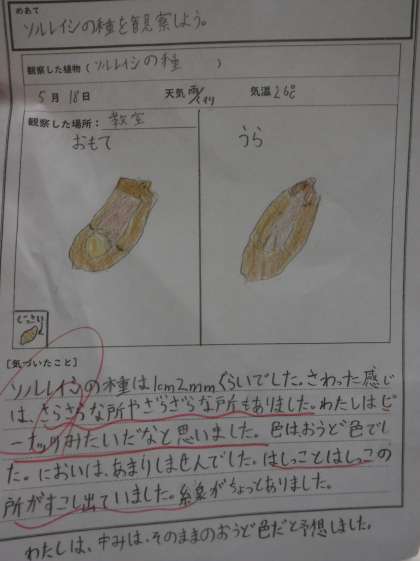 めあて
ツルレイシの種を観察しよう。
観察した植物（ツルレイシの種　）
5月18日　天気 雨/くもり　気温26℃
観察した場所：教室
おもて
うら
[気づいたこと]
ツルレイシの種は1cm2mmぐらいでした。さわった感じ
は、さらさらな所やざらざらな所もありました。わたしはピ
ーナッツみたいだなと思いました。色はおうど色でし
た。においは、あまりしませんでした。はしっことはしっこの
所がすこし出ていました。線がちょっとありました。
わたしは、中みは、そのままのおうど色だと予想しました。